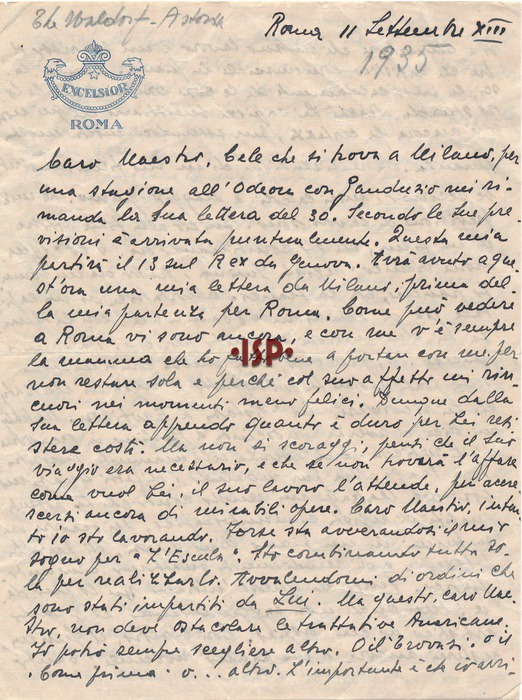 The Waldorf-Astoria
Roma 11 Settembre XIII
1935
EXCELSIOR
ROMA
Caro Maestro, Cele che si trova a Milano, per
una stagione all'Odeon con Gandusio mi ri-
manda la Sua lettera del 30. Secondo le Sue pre-
visioni è arrivata puntualmente. Questa mia
partirà il 13 sul Rex da Genova. Avrà avuto a que-
st'ora una mia lettera da Milano, prima del-
la mia partenza per Roma. Come può vedere
a Roma vi sono ancora, e con me v'è sempre
la mamma che ho a portar con me, per
•ISP•
non restare sola e perché col suo affetto mi rin-
cuori nei momenti meno felici. Dunque dalla
Sua lettera apprendo quanto è duro per Lei resi-
stere costì. Ma non si scoraggi, pensi che il Suo
viaggio era necessario, e che se non troverà l'affare
come vuol Lei, il suo lavoro l'attende, per accre-
scersi ancora di mirabili opere. Caro Maestro, intan-
to io sto lavorando. Forse sta avverandosi il mio
sogno per "L'Escula". Sto combinando tutta
per realizzarlo. Avvalendomi di ordini che
sono stati impartiti da Lui. Ma questo, caro Mae-
stro, non deve ostacolare le trattative Americane.
Io potrò sempre scegliere altro. O il "Trovarsi" o il
"Come prima" o... altro. L'importante è che io arri-